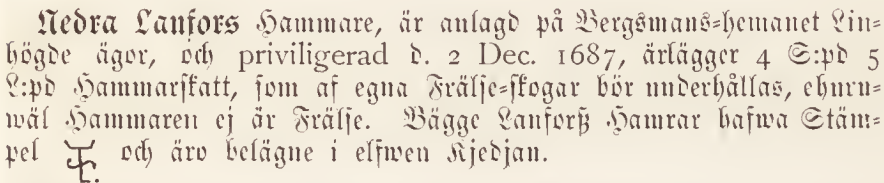 Nedra Lanfors Hammare, är anlagd på Bergsmans-hemanet Lin-
högde ägor, och priviligerad d. 2 Dec. 1687, ärlägger 4 S:pd 5
L:pd Hammarskatt, som af egna Frälse-skogar bör underhållas, ehuru-
wäl Hammaren ej är Frälse. Bägge Lanforß Hamrar hafwa Stäm-
pel och äro belägne i elfwen Kjedjan.